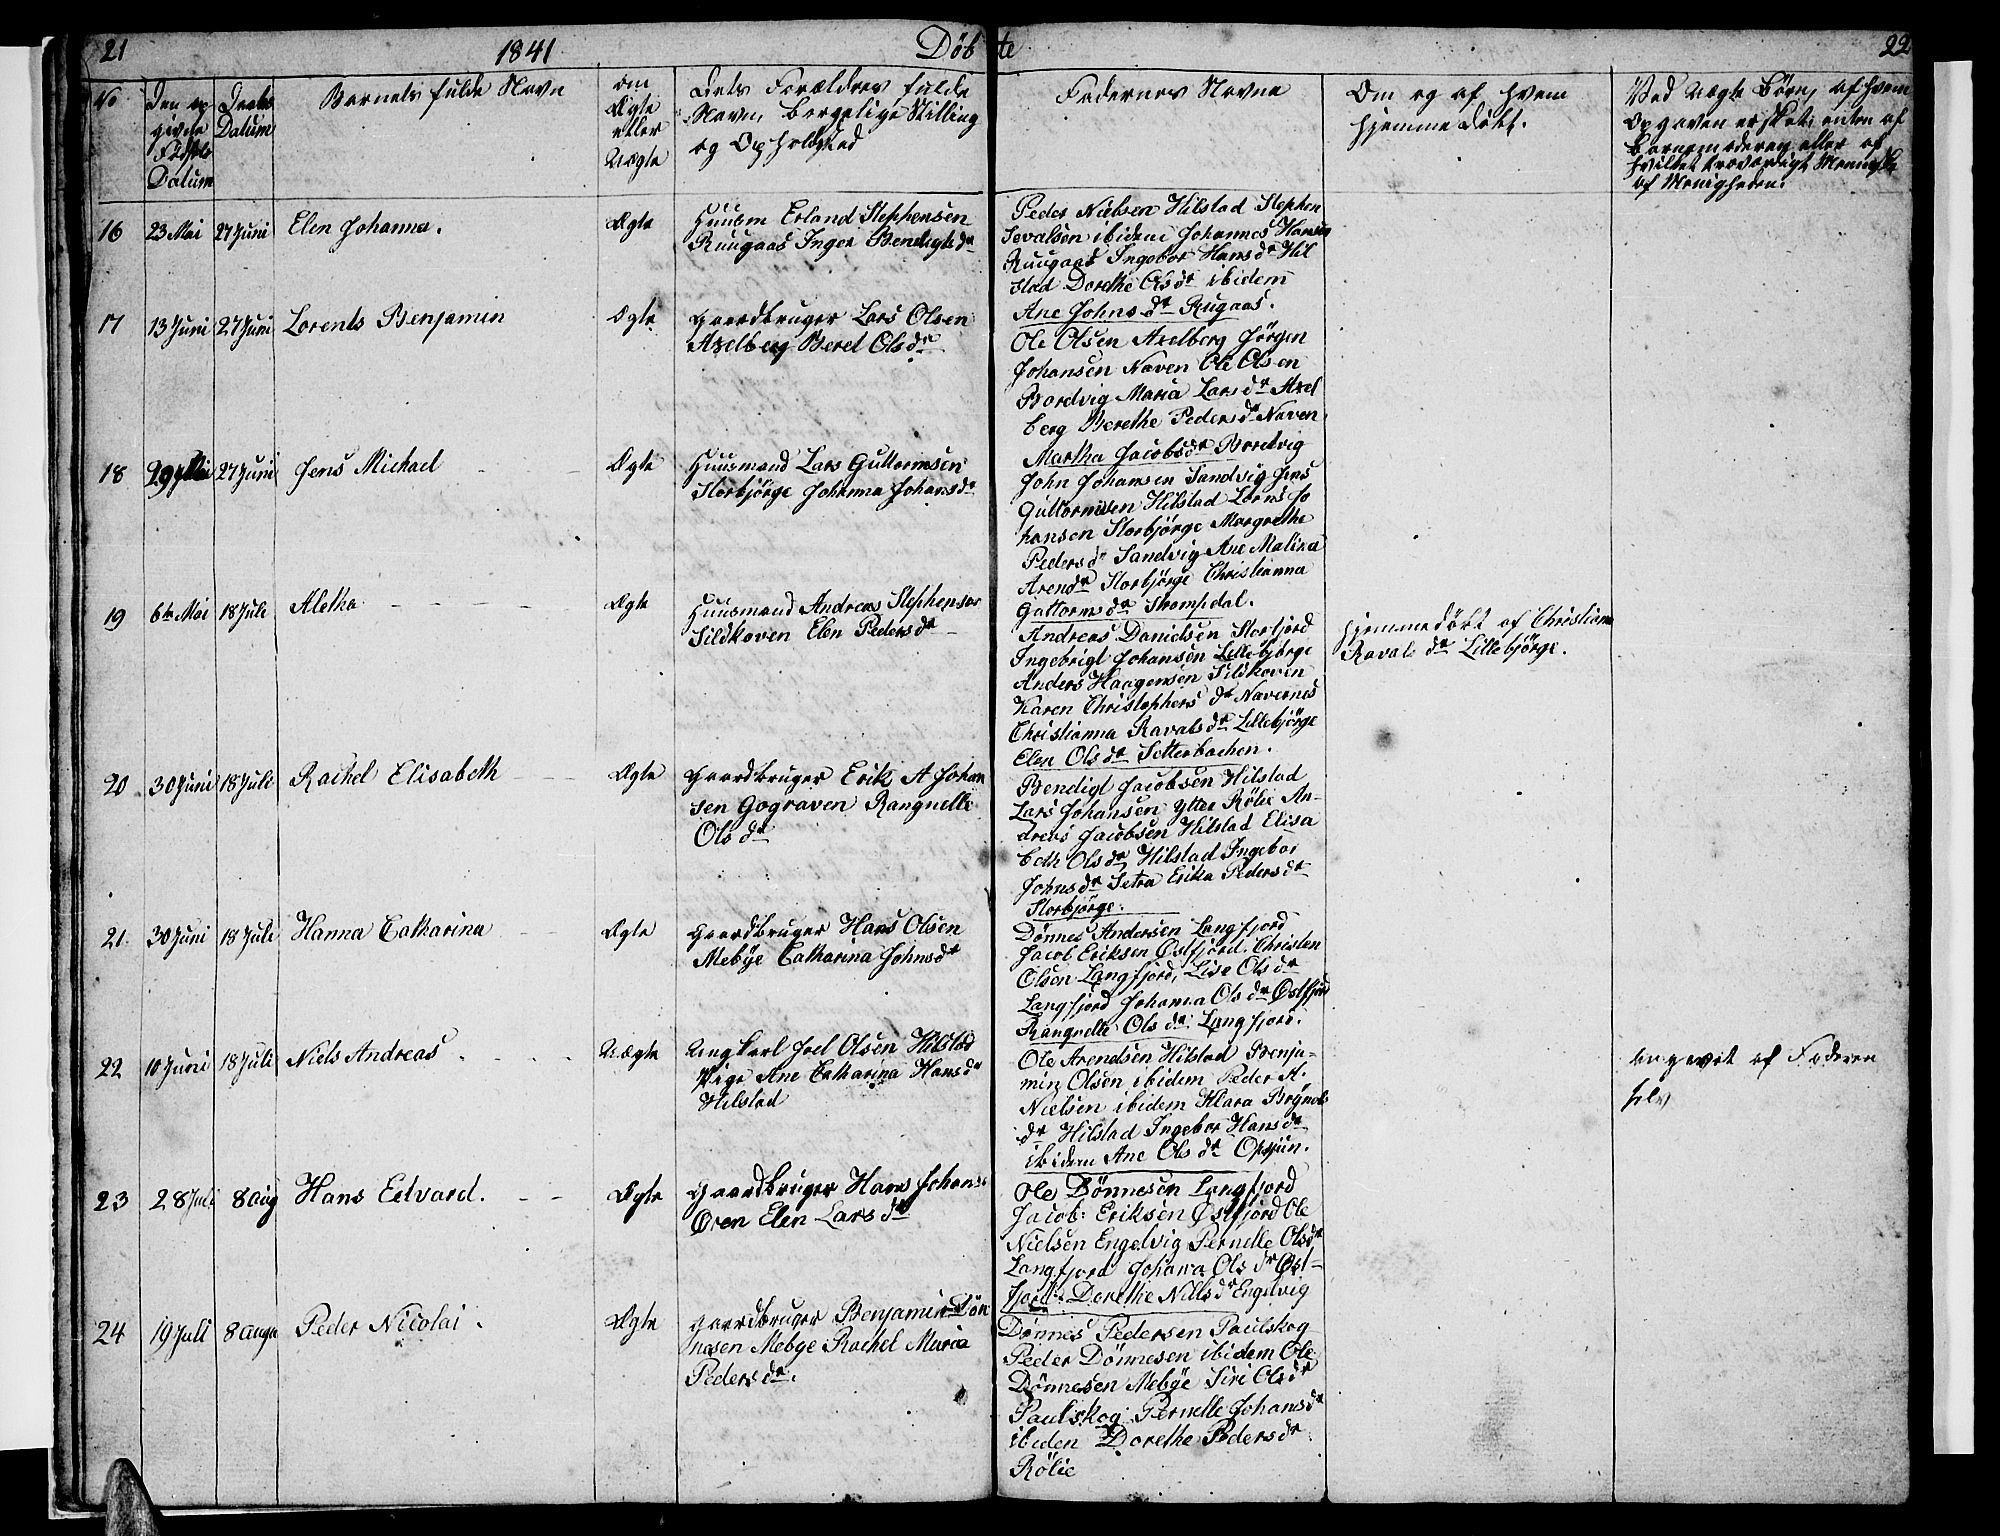 21 1841 Döbte 22
No
Den op
givne
Födsels
Datum
Daabs
Datum
Barnets fulde Navn
Om
Ægte
eller
Uægte
Dets Forældres fulde
Navn, borgelige Stilling
og Opholdsted
Faddernes Navne
Om og af hvem
hjemme döbt.
Ved uægte Börn, af hvem
Opgaven er sket, enten af
Barnemoderen eller af
hvilket troværdigt Menniske
af Menigheden.
16 23 Mai 27 Juni Elen Johanna. Ægte
Huusm Erland Stephensen
Ruugaas Inger Bendigtsdr
Peder Nielsen Hilstad Stephen
Sevalsen ibidem Johannes Hansen
Ruugaas Ingebor Hansdr Hil
stad Dorethe Olsdr ibidem
Ane Johnsdr Rugaas.
17 13 Juni 27 Juni Lorents Benjamin Ægte
Gaardbruger Lars Olsen
Axelberg Beret Olsdr
Ole Olsen Axelberg Jörgen
Johansen Naven Ole Olsen
Bordvig Maria Larsdr Axel
berg Berethe Pedersdr Naven
Martha Jacobsdr Bordvig
18 29 Mai 27 Juni Jens Michael Ægte
Huusmand Lars Guttormsen
Storbjörge Johanna Johansdr
John Johansen Sandvig Jens
Guttormsen Hilstad Lorns Jo
hansen Storbjörge Margrethe
Pedersdr Sandvig Ane Malina
Arendr Storbjörge Christianna
Guttormsdr Strompdal.
19 6te Mai 18 Juli Aletha Ægte
Huusmand Andreas Stephensen
Sildhoven Elen Pedersdr
Andreas Danielsen Storfjord
Ingebrigt Johansen Lillebjörge
Anders Haagensen Sildhoven
Karen Christophersdr Navernes
Christianna Ravalsdr Lillebjörge
Elen Olsdr Setterbachen.
hjemmedöbt af Christiana
Ravalsdr Lillebjörge.
20 30 Juni 18 Juli Rachel Elisabeth Ægte
Gaardbruger Erik A Johan
sen Gograven Rangnelle
Olsdr
Bendigt Jacobsen Hilstad
Lars Johansen Ytter Rölie An-
dreas Jacobsen Hilstad Elisa
beth Olsdr Hilstad Ingebor
Johnsdr Setra Erika Pedersdr
Storbjörge.
21. 30 Juni 18 Juli Hanna Catharina Ægte
Gaardbruger Hans Olsen
Mebye Catharina Johnsdr
Dönnes Andersen Langfjord
Jacob Eriksen Östfjord Christen
Olsen Langfjord, Lise Olsdr
Langfjord Johanna Olsdr Östfjord
Rangnelle Olsdr Langfjord.
22 10 Juni 18 Juli Niels Andreas Uægte
Ungkarl Joel Olsen Hilstad
Pige Ane Catharina Hansdr
Hilstad
Ole Arendsen Hilstad Benja-
min Olsen ibidem Peder A.
Nielsen ibidem Klara Brynels
dr Hilstad Ingebor Hansdr
ibidem Ane Olsdr Opsjün.
angevet af Faderen
selv
23 28 Juli 8 Aug Hans Edvard. Ægte
Gaardbruger Hans Johans
Oren Elen Larsdr
Ole Dönnesen Langfjord
Jacob Eriksen Östfjord Ole
Nielsen Engelvig Pernelle Olsdr
Langfjord Johanna Olsdr Öst-
fjord Dorethe Nielsdr Engelvig
24 19 Juli 8 Augu Peder Nicolai. Ægte
Gaardbruger Benjamin Dön
nesen Mebye Rachel Maria
Pedersdr.
Dönnes Pedersen Paulskog
Peder Dönnesen ibidem Ole
Dönnesen Mebye Siri Olsdr
Paulskog Pernelle Johansdr
ibiden Dorethe Pedersdr
Rölie